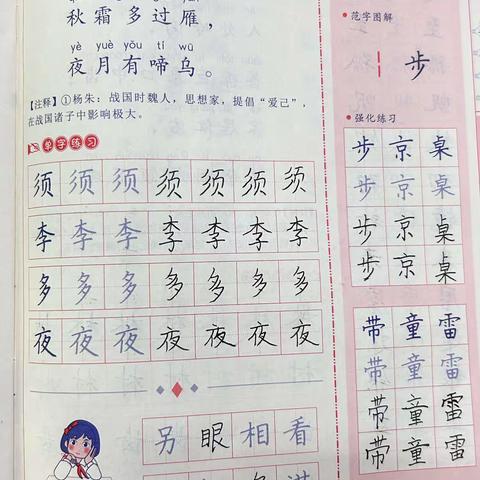 秋霜多过雁，
yè yuè yǒu tí wū
夜月有啼乌。
【注释】①杨朱：战国时魏人，思想家，提倡“爱己”，
在战国诸子中影响极大。
单字练习
须须须须须须须
李李李李李李李
多多多多多多多
夜夜夜夜夜夜夜
另眼相看
范字图解
步
强化练习
步京桌
步京桌
步京桌
步京桌
带童雷
带童雷
带童雷
带童雷